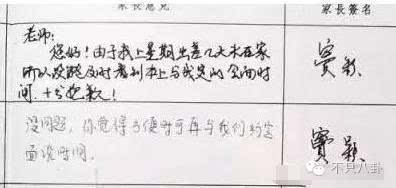 家长意见
家长签名
老师：
您好！由于我上星期出差几天未在家
所以没能及时看到本上与我定的会面时
间．十分抱歉！
窦颖
没问题，你觉得方便时可再与我们约定
面谈时间．
窦颖
不只八卦